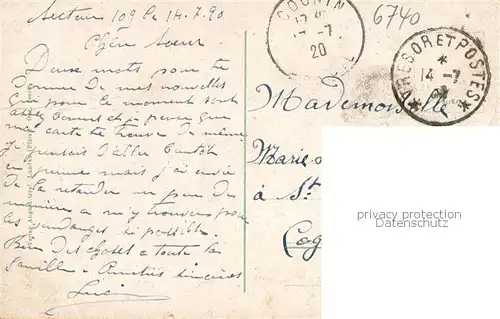 Secteur 109 le 14.7.20
Chère Soeur
Deux mots pour te
donner de mes nouvelles
que pour le moment sont
assez bonnes et je pense que
ma carte te trouve de même
je pensais d'aller bientôt
en perme mais j'ai envie
de la retarder un peu de
manière a m'y trouver pour
les vendanges si possible.
Bien des choses a toute la
famille. Amitiés sincères
6740
17
-7
20
TRESOR ET POSTES
14-7
Mademoiselle
Marie
à St
privacy protection
©ansichtskartenhandel.com